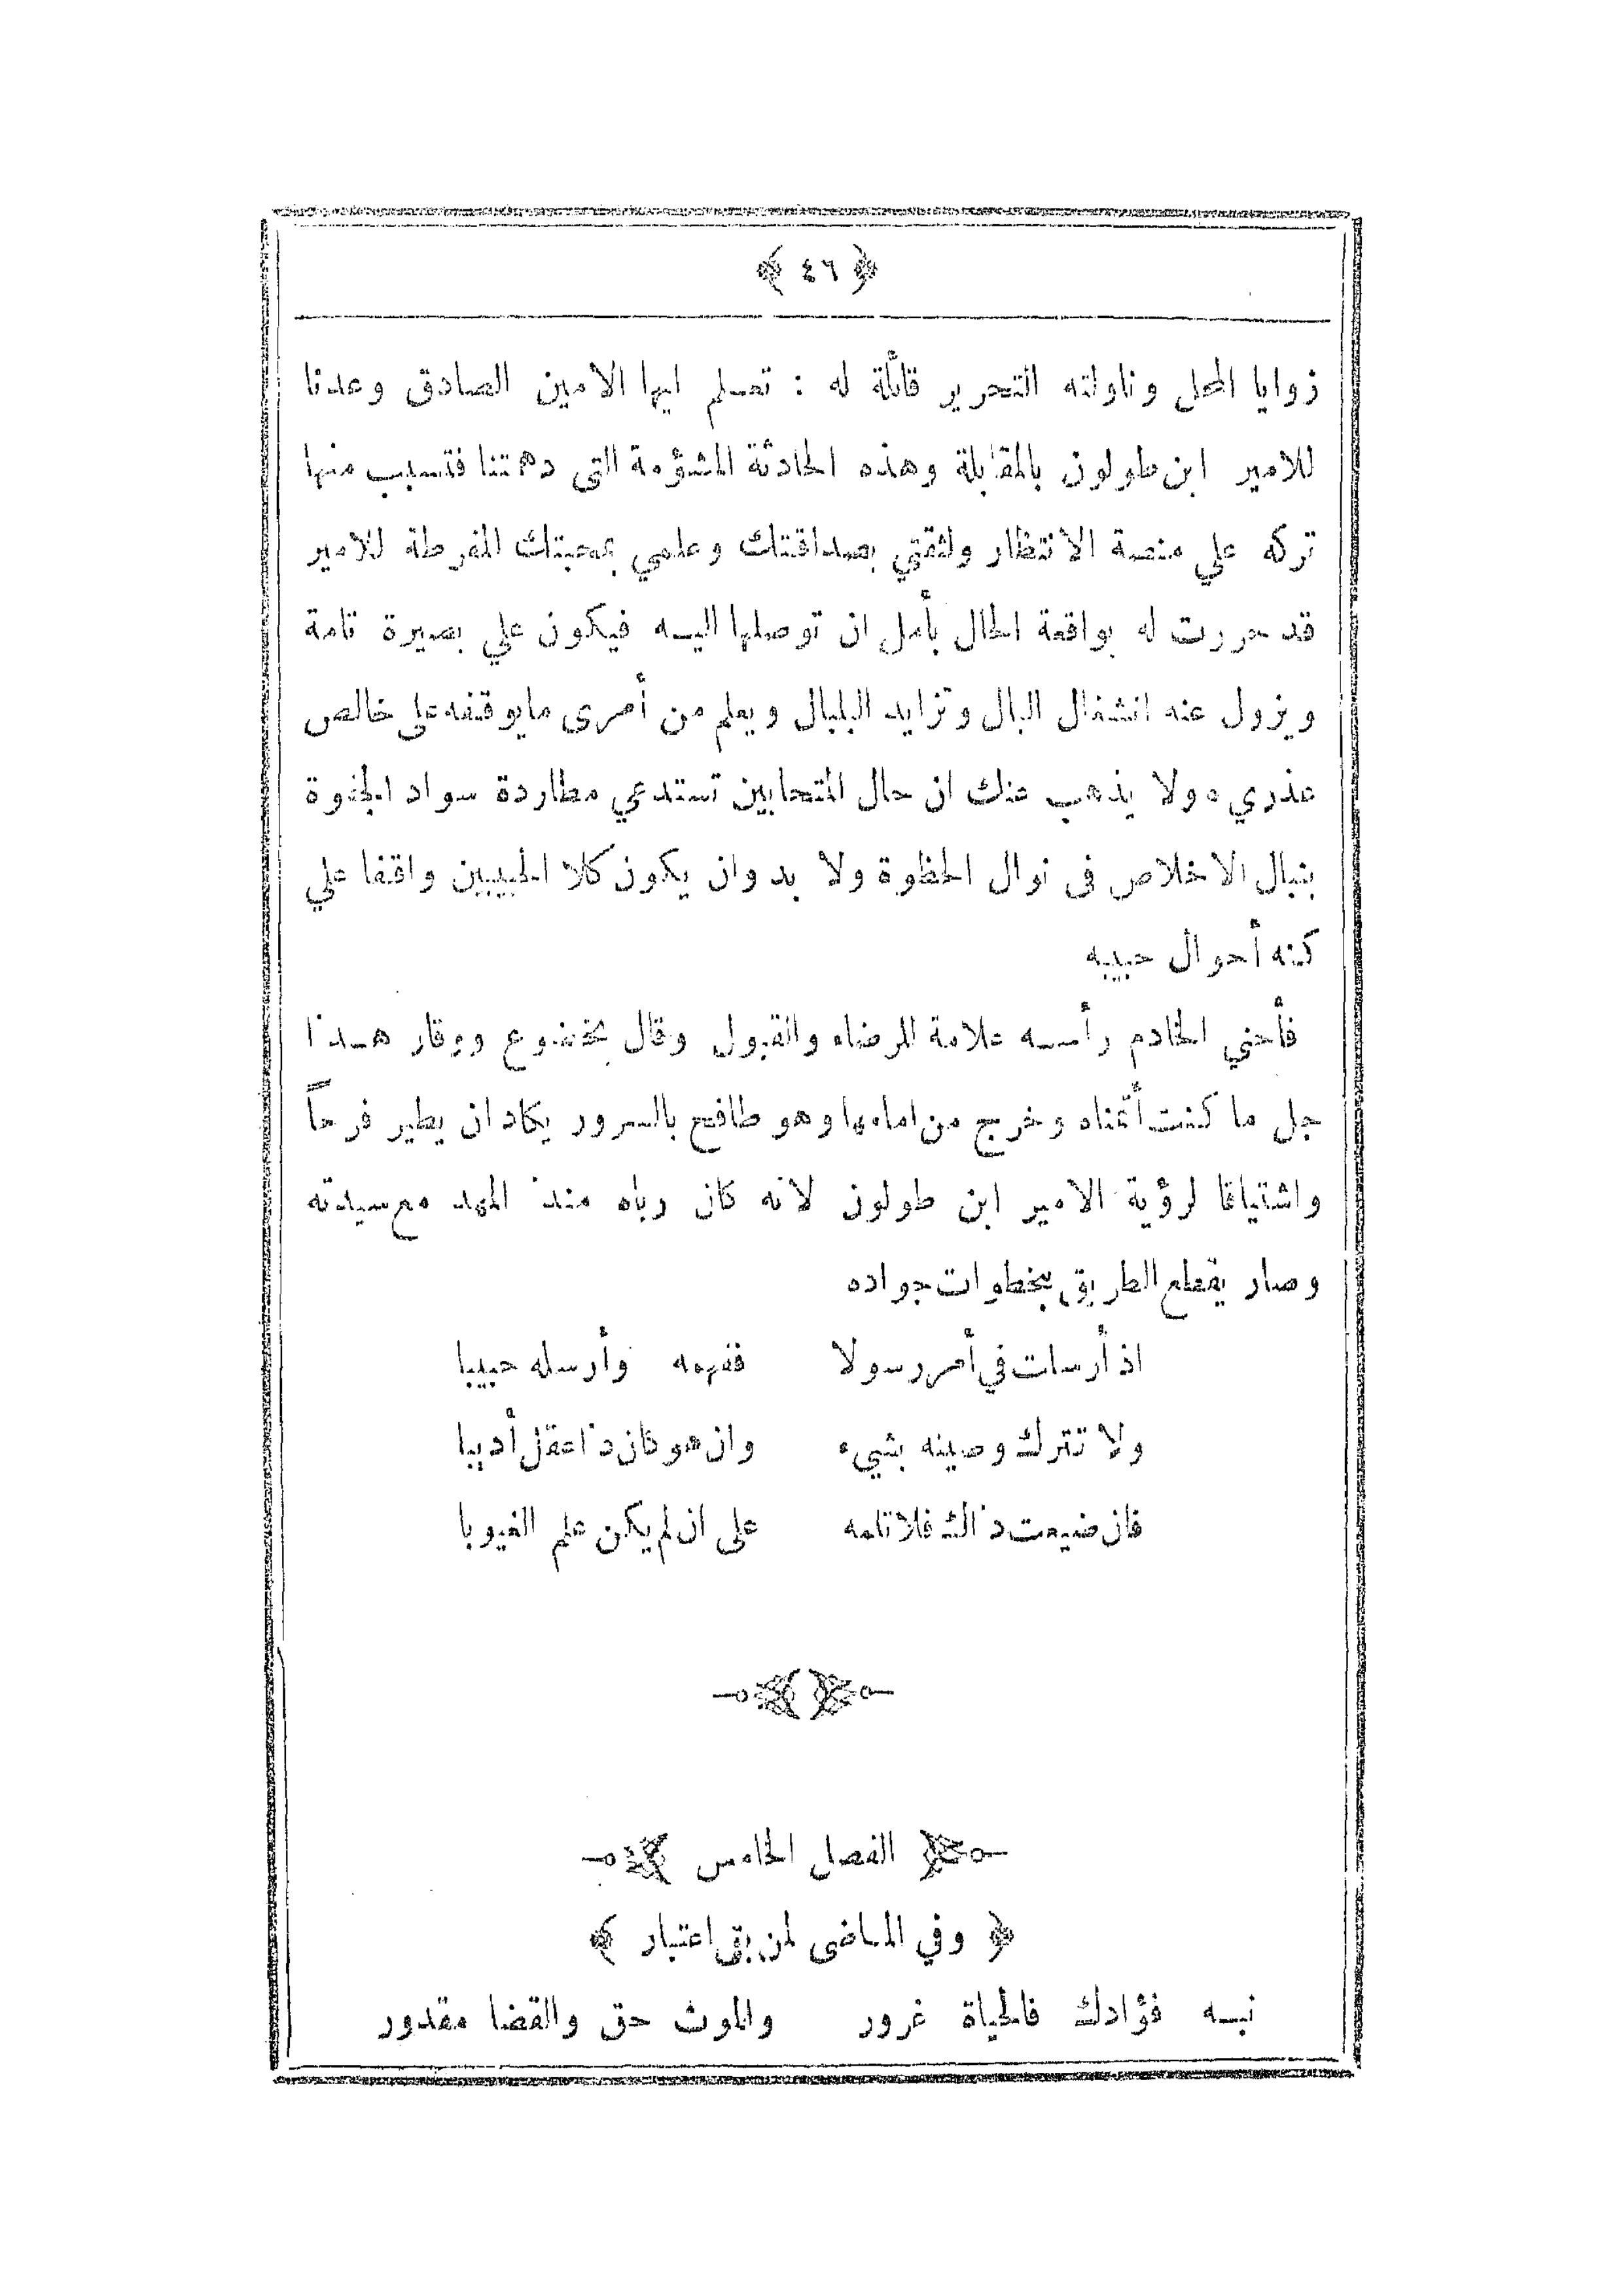 ﴿ ٤٦ ﴾
زوايا المحل وناولته التحرير قائلة له : تعلم ايها الامين الصادق وعدنا
للامير ابن طولون بالمقابلة وهذه الحادثة المشؤمة التى دهمتنا فتسبب منها
تركه علي منصة الانتظار ولثقتي بصداقتك وعلمي بمحبتك المفرطة للامير
قد حررت له بواقعة الحال بأمل ان توصلها اليه فيكون علي بصيرة تامة
ويزول عنه انشغال البال وتزايد البلبال ويعلم من أمرى مايوقفه على خالص
عذري ولا يذهب عنك ان حال المتحابين تستدعي مطاردة سواد الجفوة
بنبال الاخلاص فى نوال الحظوة ولا بد وان يكون كلا الحبيبين واقفا علي
كنه أحوال حبيبه
فأحني الخادم رأسه علامة الرضاء والقبول وقال بخضوع ووقار هذا
جل ما كنت أتمناه وخرج من امامها وهو طافح بالسرور يكاد ان يطير فرحاً
واشتياقا لرؤية الامير ابن طولون لانه كان رباه منذ المهد مع سيدته
وصار يقطع الطريق بخطوات جواده
اذ أرسلت في أمر رسولا ففهمه وأرسله حبيبا
ولا تترك وصيته بشيء وان هو كان ذا عقل أديبا
فان ضيعت ذاك فلا تلمه على ان لم يكن علم الغيوبا
الفصل الخامس
﴿ وفي الماضى لمن بقى اعتبار ﴾
نبه فؤادك فالحياة غرور والموت حق والقضا مقدور